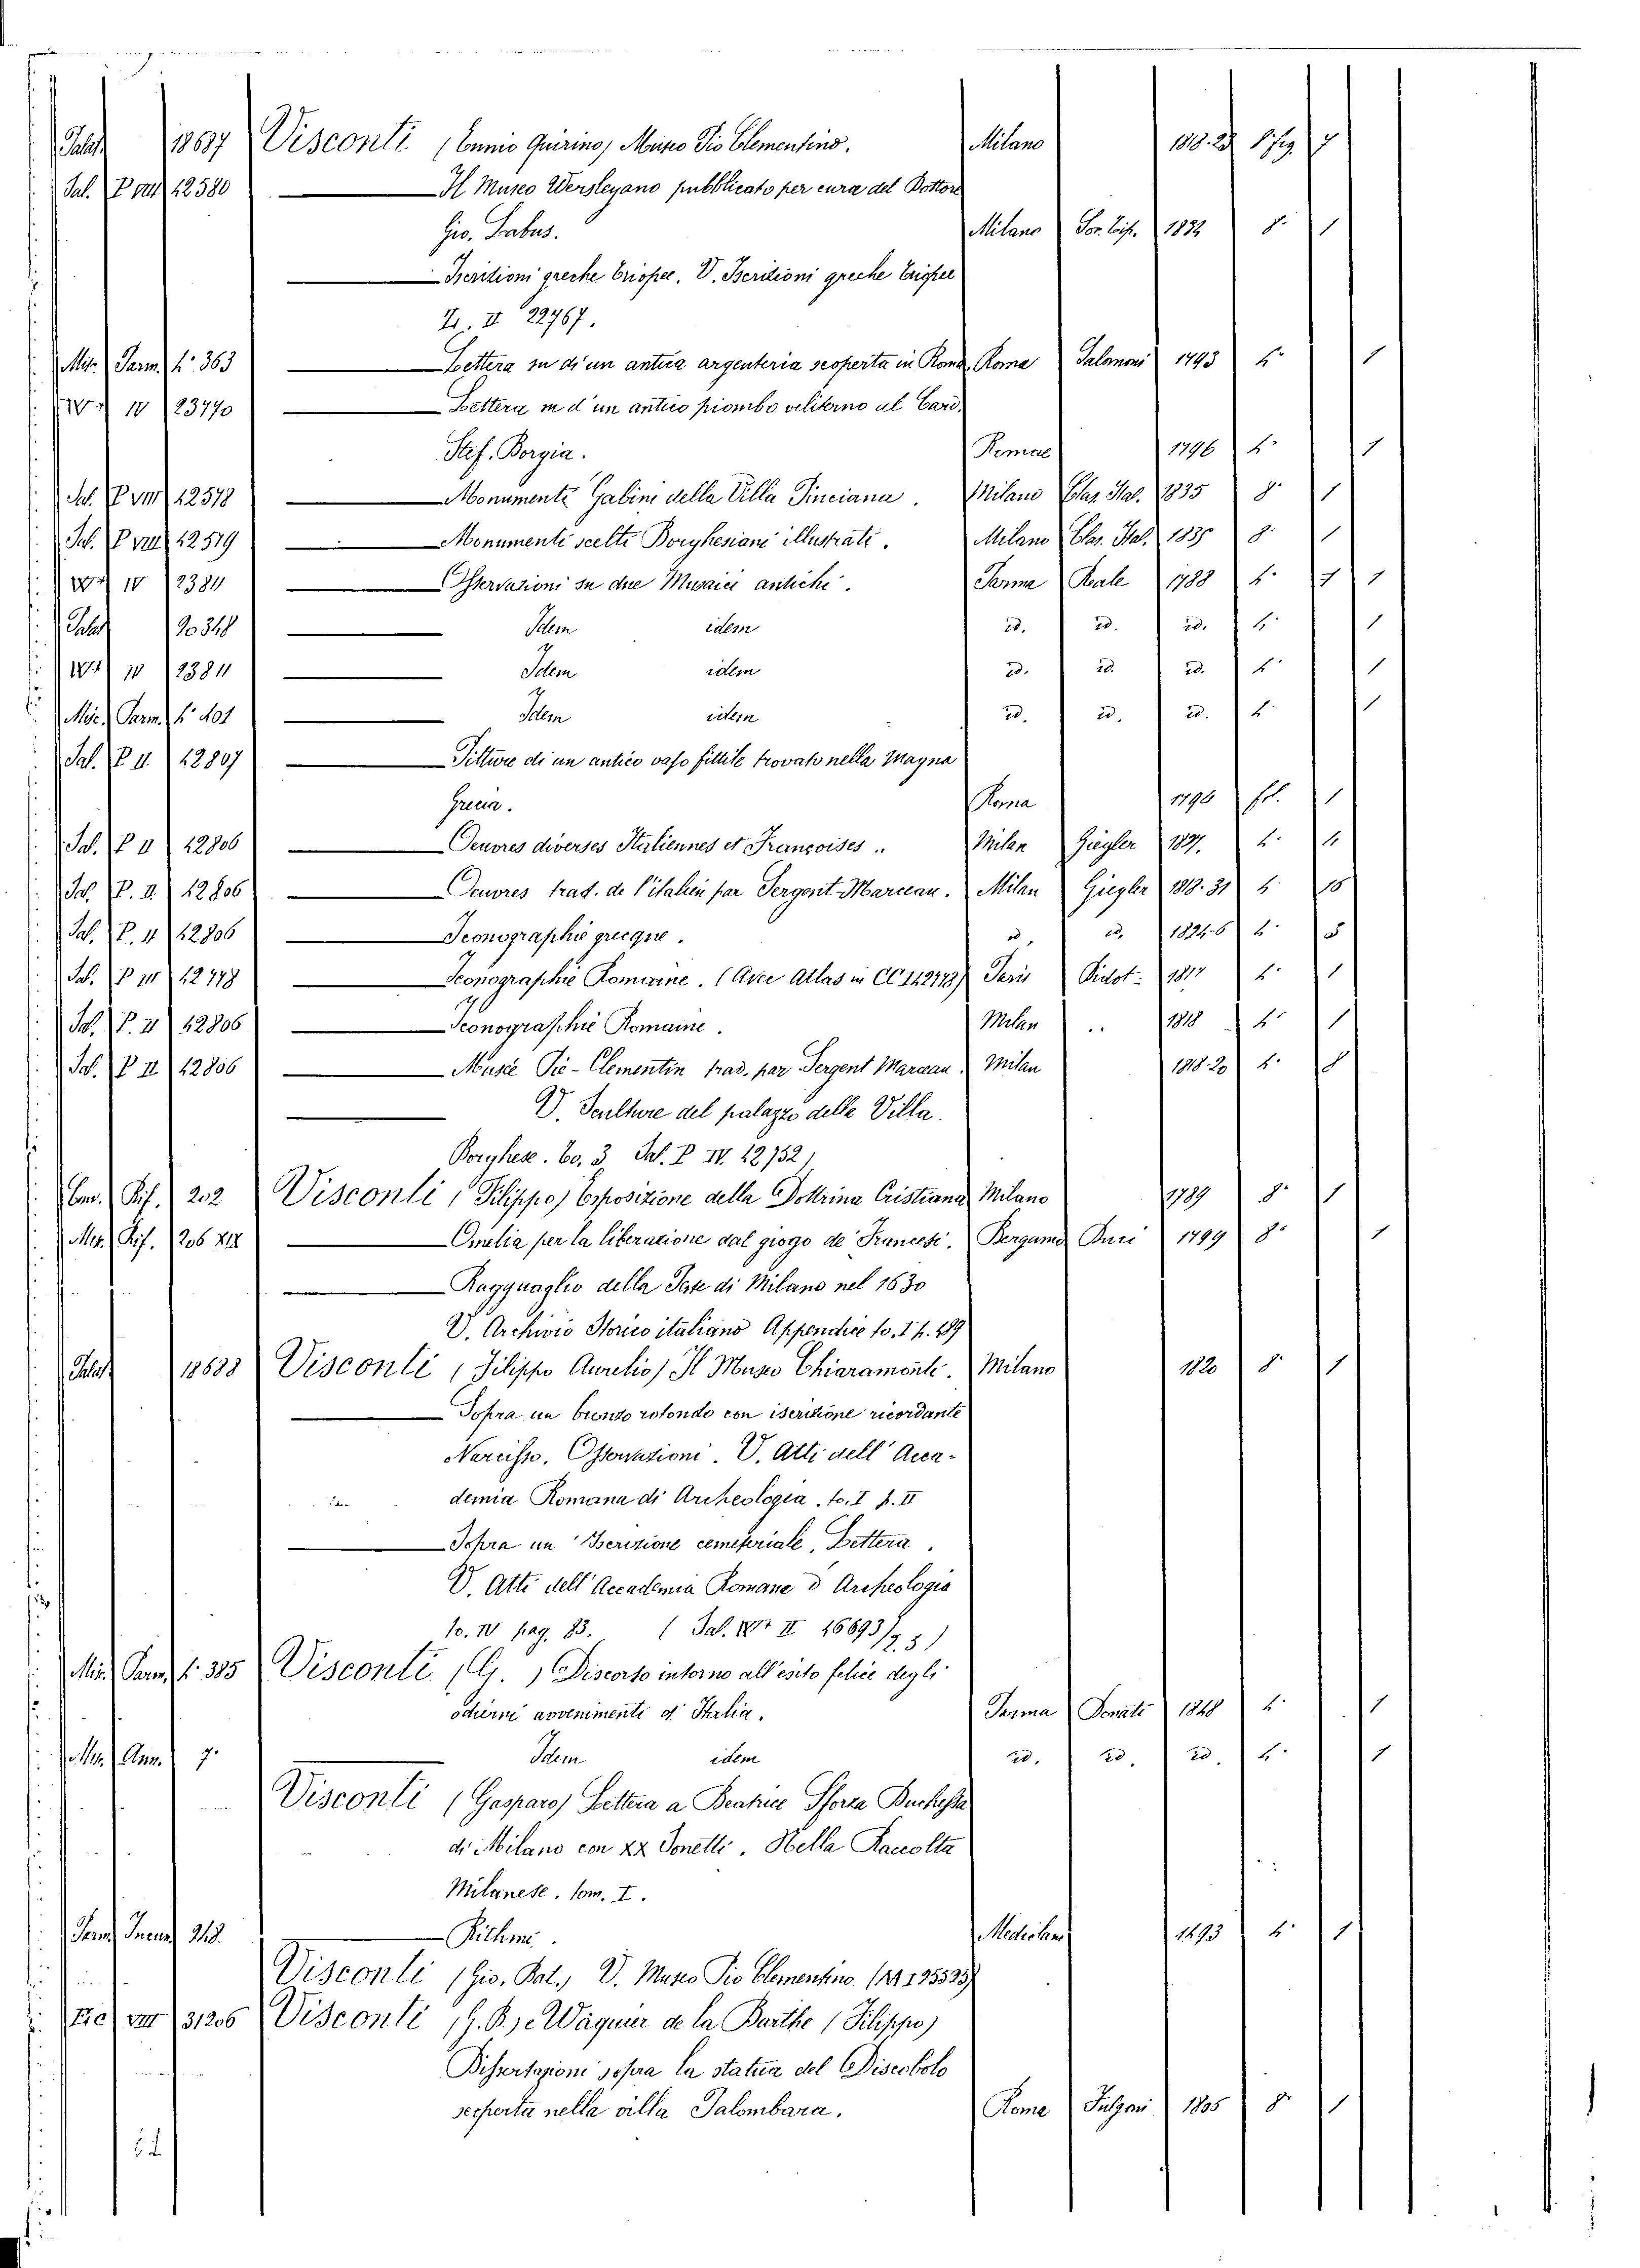 Palat 18687 Visconti (Ennio Quirino) Museo Pio Clementino. Milano 1818-22 8 fig 7
Sal. P VIII 12580 Il Museo Worsleyano pubblicato per cura del Dottore
Gio. Labus. Milano 1832 8° 1
Iscrizioni greche Triopee. V. Iscrizioni greche Triopee
II 22767.
Misc. Parm. 4° 363 Lettera su di un antica argenteria scoperta in Roma Roma Salomoni 1793 4° 1
IV 23770 Lettera su d'un antico piombo veliterno al Card.
Stef. Borgia. Romae 1796 4° 1
Sal. P VIII 12578 Monumenti Gabini della Villa Pinciana. Milano Clas. Ital. 1835 8° 1
Sal. P VIII 12579 Monumenti scelti Borghesiani illustrati. Milano Clas. Ital. 1835 8° 1
IV 12384 Osservazioni su due Musaici antichi. Parma Reale 1788 4° 1
Palat 20348 Idem idem id. id. id. 4° 1
IV 12384 Idem idem id. id. id. 4° 1
Misc. Parm. 4° 401 Idem idem id. id. id. 4° 1
Sal. P II. 12807 Pitture di un antico vaso fittile trovato nella Magna
Grecia. Roma 1796 fol. 1
Sal. P II 12806 Oeuvres diverses Italiennes et Françoises. Milan Giegler 1827. 4° 4
Sal. P. II. 12806 Oeuvres trad. de l'italien par Sergent-Marceau. Milan Giegler 1818-31 4° 15
Sal. P. II 12806 Iconographie grecque. id. id. 1824-6 4° 5
Sal. P III 12778 Iconographie Romaine. (Avec Atlas in CC I 12778) Paris Didot 1817 4° 1
Sal. P. II 12806 Iconographie Romaine. Milan 1818 4° 1
Sal. P II 12806 Musée Pie-Clementin trad. par Sergent Marceau. Milan 1818-20 4° 8
V. Sculture del palazzo della Villa
Borghese. to. 3 Sal. P IV. 12752)
Com. Rif. 202 Visconti (Filippo) Esposizione della Dottrina Cristiana Milano 1789 8° 1
Misc. Rif. 206 Omelia per la liberazione dal giogo de Francesi. Bergamo Duci 1799 8° 1
Ragguaglio della Peste di Milano nel 1630
V. Archivio Storico italiano Appendice to. I p. 489
Palat 18688 Visconti (Filippo Aurelio) Il Museo Chiaramonti. Milano 1820 8° 1
Sopra un bronzo rotondo con iscrizione ricordante
Narcisso. Osservazioni. V. Atti dell'Acca-
demia Romana di Archeologia. to. I p. II
Sopra un Iscrizione cemeteriale, Lettera.
V. Atti dell'Accademia Romana d'Archeologia
to. IV pag. 83. (Sal. II 16693/2.5)
Misc. Parm. 4° 385 Visconti (G.) Discorso intorno all'esito felice degli
odierni avvenimenti d'Italia. Parma Donati 1848 4° 1
Misc. Ann. 7. Idem idem id. id. id. 4° 1
Visconti (Gasparo) Lettera a Beatrice Sforza Duchessa
di Milano con XX Sonetti. Nella Raccolta
Milanese. tom. I.
Parm. Incun. 218. Rithmi. Mediolani 1493 4° 1
Visconti (Gio. Bat.) V. Museo Pio Clementino
VIII 31206 Visconti (G. B.) e Waquier de la Barthe (Filippo)
Dissertazioni sopra la statua del Discobolo
scoperta nella villa Palombara. Roma Fulgoni 1805 8° 1